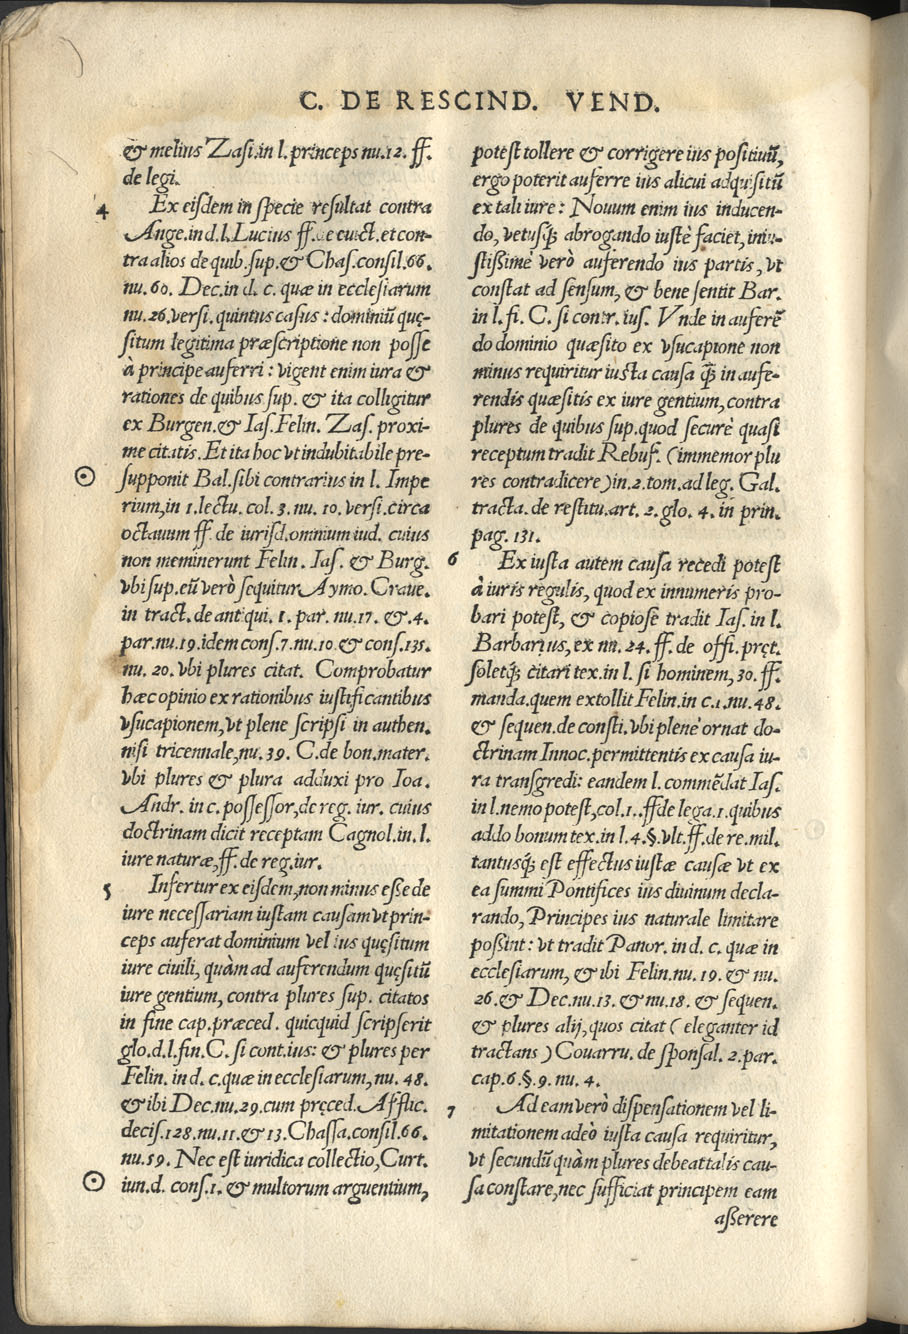 C. DE RESCIND. VEND.
& melius Zasi.in l. princeps nu.12. ff.
de legi.
4 Ex eisdem in specie resultat contra
Ange.in d.l. Lucius ff.de euict.et con-
tra alios de quib.sup.& Chas.consil.66.
nu.60. Dec.in d. c. quæ in ecclesiarum
nu.26.versi.quintus casus: dominiũ quę-
situm legitima præscriptione non posse
à principe auferri: vigent enim iura &
rationes de quibus sup. & ita colligitur
ex Burgen.& Ias.Felin. Zas. proxi-
me citatis. Et ita hoc vt indubitabile pre-
supponit Bal.sibi contrarius in l. Impe
rium,in 1.lectu. col. 3. nu. 10. versi.circa
octauum ff. de iurisd.omnium iud. cuius
non meminerunt Felin. Ias. & Burg.
vbi sup.eũ verò sequitur Aymo. Craue.
in tract. de antiqui. 1. par. nu.17. &.4.
par.nu.19.idem cons.7.nu.10.& cons.135.
nu. 20. vbi plures citat. Comprobatur
hæc opinio ex rationibus iustificantibus
vsucapionem,vt plene scripsi in authen.
nisi tricennale,nu. 39. C.de bon.mater.
vbi plures & plura adduxi pro Ioa.
Andr. in c. possessor,de reg. iur. cuius
doctrinam dicit receptam Cagnol.in. l.
iure naturæ,ff.de reg.iur.
5 Infertur ex eisdem,non minus eße de
iure necessariam iustam causam vt prin-
ceps auferat dominium vel ius quęsitum
iure ciuili, quàm ad auferendum quęsitũ
iure gentium, contra plures sup. citatos
in fine cap.præced. quicquid scripserit
glo.d.l.fin.C. si cont.ius: & plures per
Felin. in d. c.quæ in ecclesiarum, nu. 48.
& ibi Dec.nu.29.cum pręced.Afflic.
decis.128.nu.11.& 13.Chassa.consil.66.
nu.59. Nec est iuridica collectio,Curt.
iun.d. cons.1. & multorum arguentium,
potest tollere & corrigere ius positiuũ,
ergo poterit auferre ius alicui adquisitũ
ex tali iure: Nouum enim ius inducen-
do, vetusq́; abrogando iustè faciet, iniu-
stißimè verò auferendo ius partis, vt
constat ad sensum, & bene sentit Bar.
in l. fi. C. si contr. ius. Vnde in auferẽ
do dominio quæsito ex vsucapione non
minus requiritur iusta causa q̃ in aufe-
rendis quæsitis ex iure gentium, contra
plures de quibus sup.quod securè quasi
receptum tradit Rebuf. (immemor plu
res contradicere)in.2.tom.ad leg. Gal.
tracta. de restitu.art. 2. glo. 4. in prin.
pag. 131.
6 Ex iusta autem causa recedi potest
à iuris regulis, quod ex innumeris pro-
bari potest, & copiose tradit Ias. in l.
Barbarius, ex nu. 24. ff. de offi. pręt.
soletq́; citari tex.in l. si hominem, 30. ff.
manda.quem extollit Felin.in c.1.nu.48.
& sequen.de consti.vbi plenè ornat do-
ctrinam Innoc.permittentis ex causa iu-
ra transgredi: eandem l. commẽdat Ias.
in l.nemo potest,col.1..ff de lega.1.quibus
addo bonum tex.in l.4.§.vlt.ff.de re.mil.
tantusq́; est effectus iustæ causæ vt ex
ea summi Pontifices ius diuinum decla-
rando, Principes ius naturale limitare
poßint: vt tradit Panor. in d. c. quæ in
ecclesiarum, & ibi Felin.nu. 19. & nu.
26.& Dec.nu.13. & nu.18. & sequen.
& plures alij, quos citat ( eleganter id
tractans ) Couarru. de sponsal. 2.par.
cap.6.§.9. nu. 4.
7 Ad eam verò dispensationem vel li-
mitationem adeò iusta causa requiritur,
vt secundũ quàm plures debeat talis cau-
sa constare, nec sufficiat principem eam
aßerere